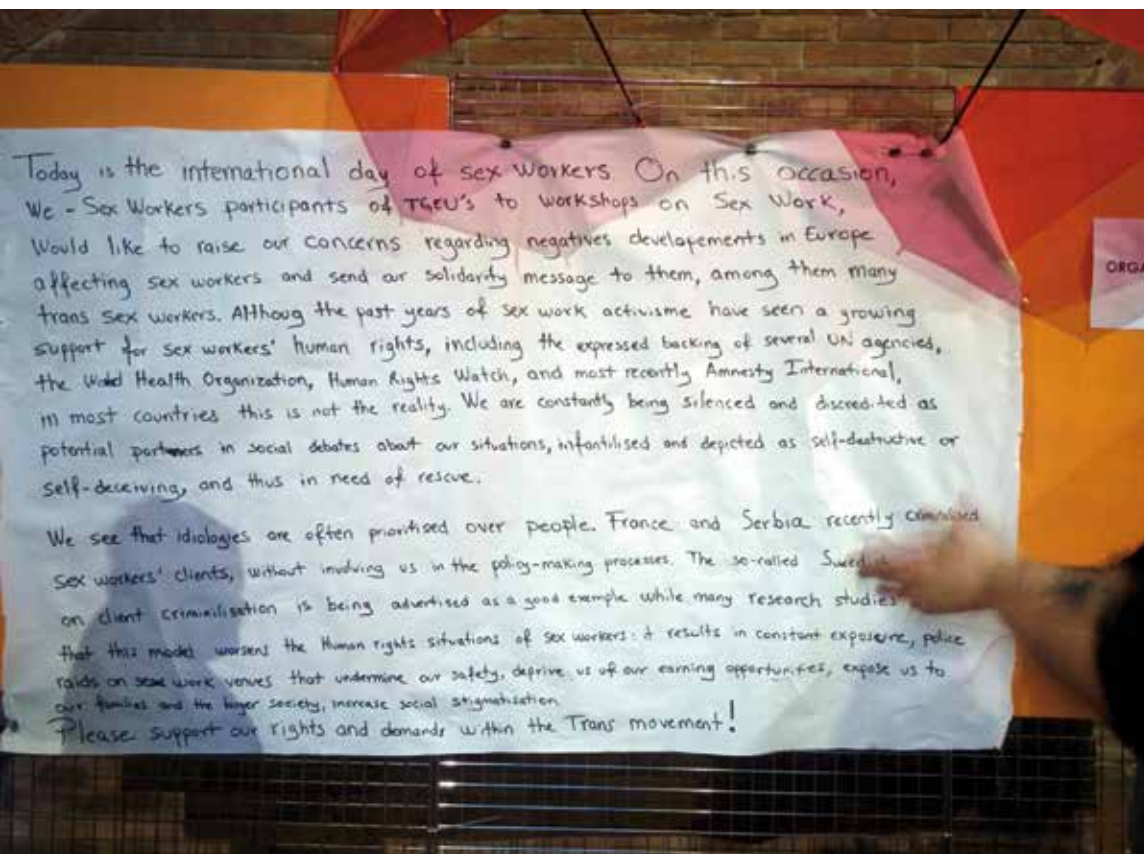 Today is the international day of sex workers On this occasion,
We - Sex Workers participants of TGEU's to workshops on Sex Work,
Would like to raise our concerns regarding negatives developements in Europe
affecting sex workers and send our solidarity message to them, among them many
trans sex workers. Althoug the past years of sex work activisme have seen a growing
support for sex workers' human rights, including the expressed backing of several UN agencies,
the World Health Organization, Human Rights Watch, and most recently Amnesty International,
in most countries this is not the reality. We are constantly being silenced and discredited as
potential partners in social debates about our situations, infantilised and depicted as self-destructive or
self-deceiving, and thus in need of rescue.
We see that idiologies are often prioritised over people. France and Serbia recently criminalised
sex workers' clients, without involving us in the policy-making processes. The so-called
on client criminilisation is being advertised as a good example while many research studies
that this model worsens the Human rights situations of sex workers: it results in constant exposure, police
raids on work venues that undermine our safety, deprive us of our earning opportunities, expose us to
our families and the larger society, increase social stigmatisation
Please support our rights and demands within the Trans movement!
ORGA